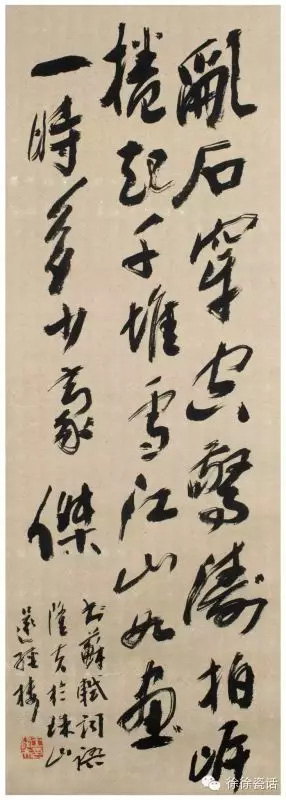 亂石穿空驚濤拍岸
捲起千堆雪江山如畫
一時多少豪傑
書蘇軾詞語
於珠山
樓
徐徐瓷话